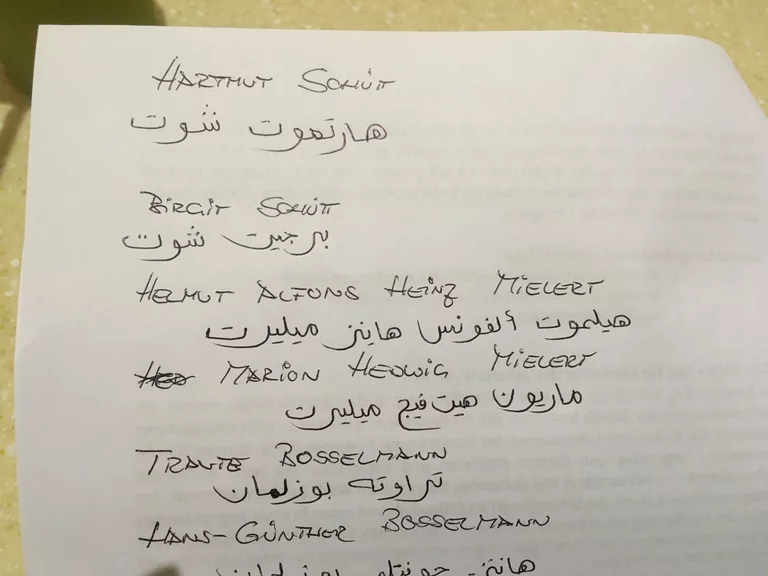 HARTMUT SCHÜTT
هارتموت شوت
BIRGIT SCHÜTT
بيرجيت شوت
HELMUT ALFONS HEINZ MIELERT
هيلموت ألفونس هاينز ميليرت
MARION HEDWIG MIELERT
ماريون هيت فيج ميليرت
TRAUTE BOSSELMANN
تراوته بوزلمان
HANS-GÜNTHER BOSSELMANN
هانز-